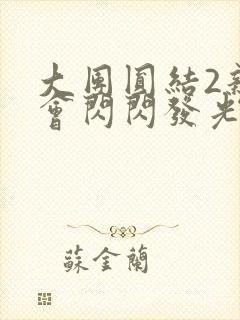 大團圓結2新
會閃閃發光
蘇金蘭